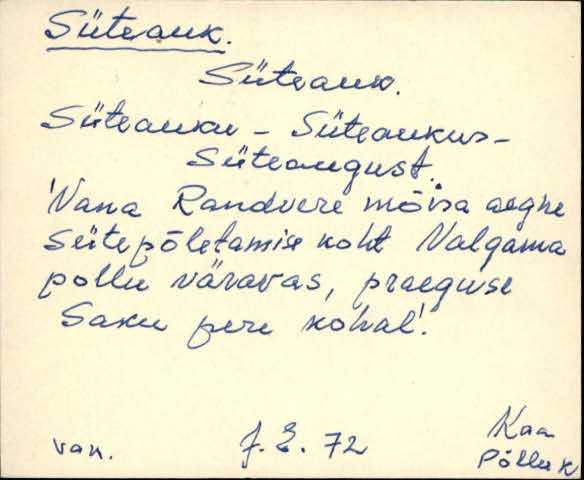 Süteauk.
Süteauk.
Süteauku - Süteaukus -
Süteaugust.
'Vana Randvere mõisa aegne
sütepõletamise koht Valgama
põllu väravas, praeguse
Saku pere kohal'.
van. J. E. 72 Kaa
Põllu k